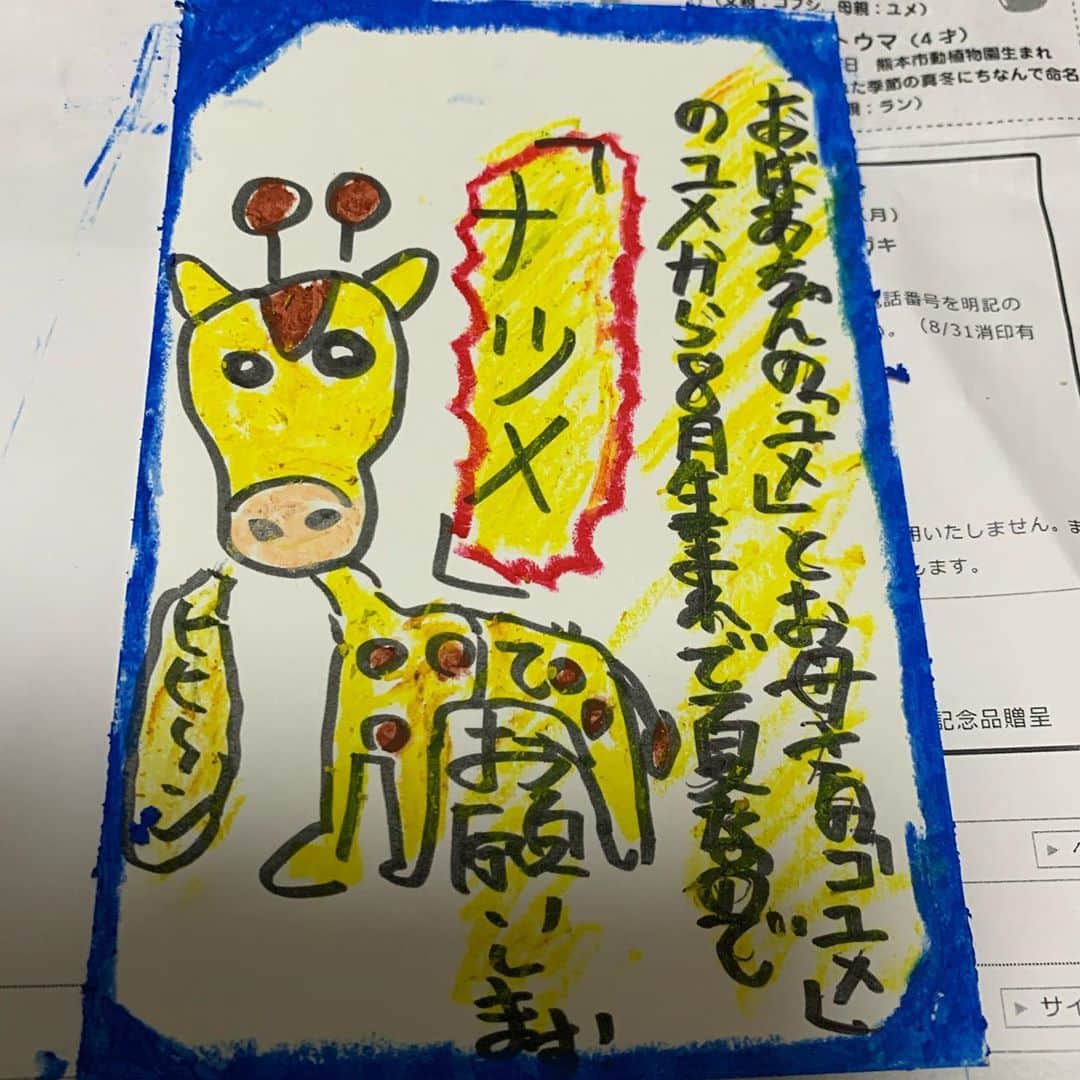 母親：ユメ）
トウマ（4才）
日 熊本市動植物園生まれ
た季節の真冬にちなんで命名
親：ラン）
（月）
ガキ
話番号を明記の
。（8/31消印有
用いたしません。ま
します。
記念品贈呈
サイ
おばあちゃんの「ユメ」とお母さんの「コユメ」
のユメから8月生まれで夏なので
「ナツメ」
でお願いします
ヒヒ〜ン